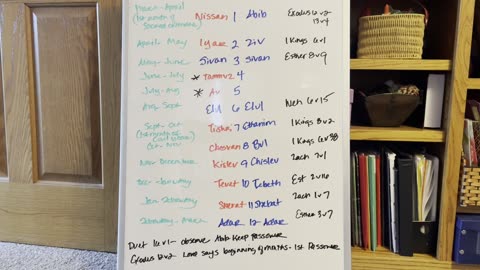 March - April Nissan 1 Abib Exodus 12v2
(1st month of 13v4
April - May Iyaar 2 Ziv 1 Kings 6v1
May - June Sivan 3 Sivan Esther 8v9
June - July * Tammuz 4
July - Aug * Av 5
Aug Sept Elul 6 Elul Neh 6v15
Sept - Oct Tishri 7 Ethanim 1 Kings 8v2
Oct - Nov Chesvan 8 Bul 1 Kings 6v38
Nov December Kislev 9 Chislev Zach 7v1
Dec - January Tevet 10 Tebeth Est 2v16
Jan February Shevat 11 Shebat Zach 1v7
February - March Adar 12 Adar Esther 3v7
Duet 16v1 - observe Abib Keep Passover
Exodus 12v2 Lord says beginning of months - 1st Passover